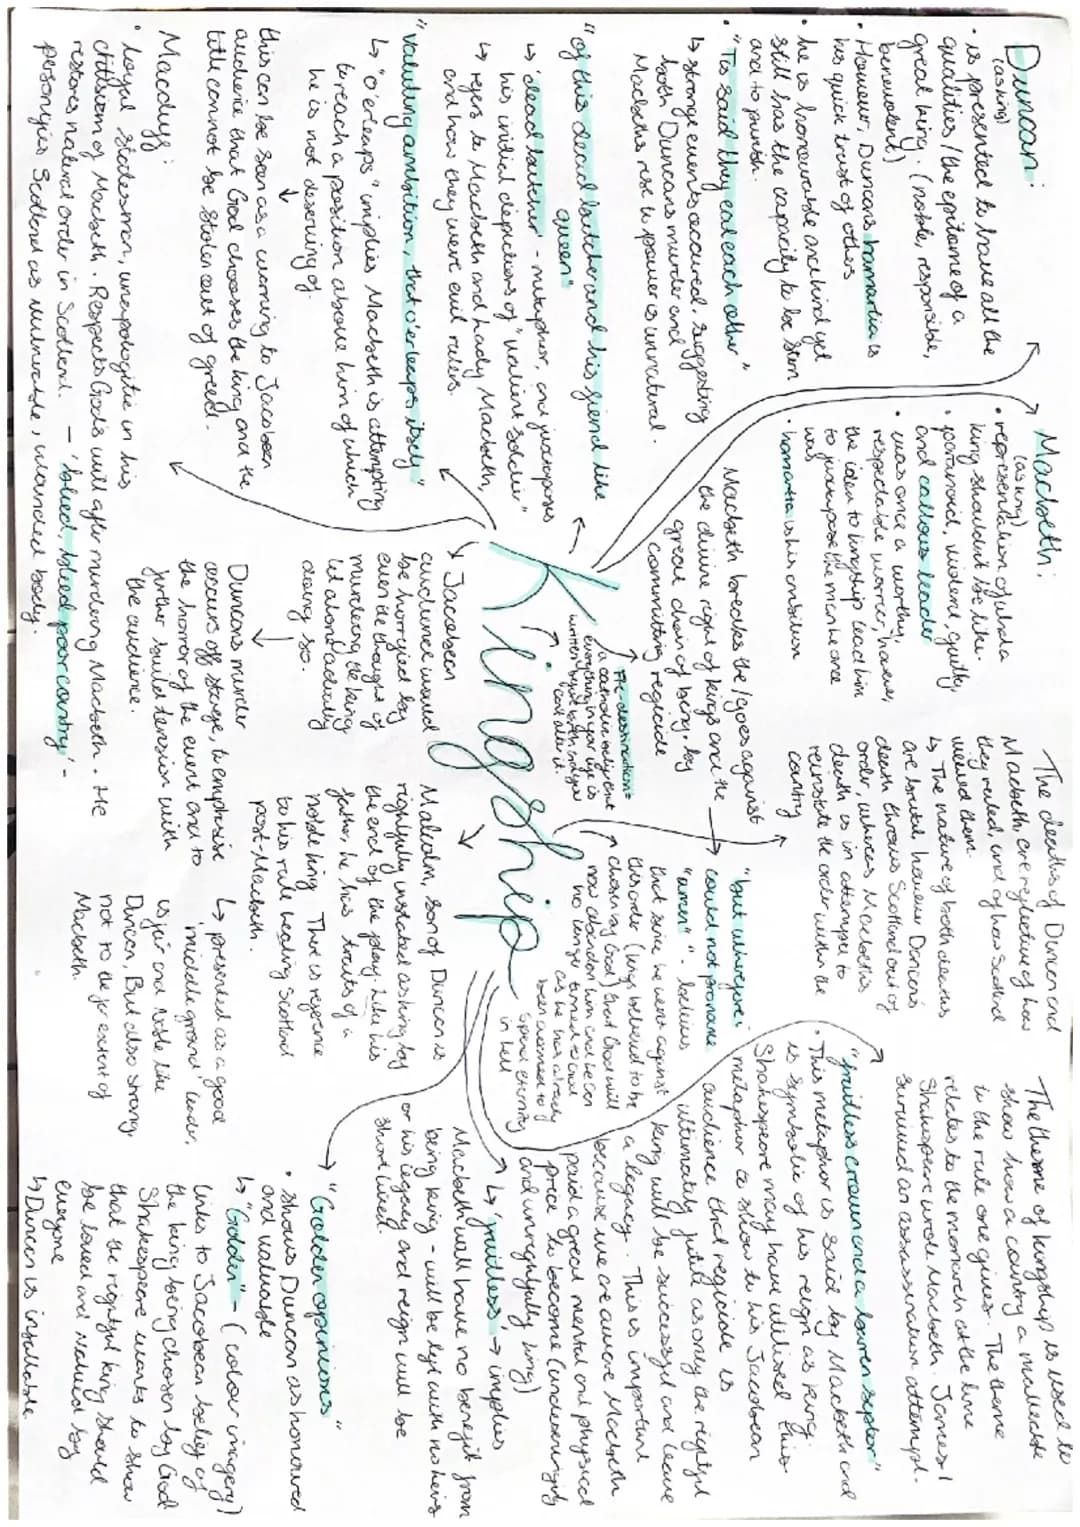 Duncan:
(as king)
• is presented to have all the
qualities / the epitome of a
great king. (noble, responsible,
benevolent)
• However, Duncans hamartia is
his quick trust of others
• he is honourable and kind yet
still has the capacity to be stern
and to punish.
• "Tis said they eat each other"
↳ strange events occurred, suggesting
both Duncans murder and
Macbeths rise to power is unnatural.
"of this dead butcher and his fiend like
queen"
↳ 'dead butcher' - metaphor, and juxtaposes
his initial depictions of "valient soldier"
↳ refers to Macbeth and Lady Macbeth,
and how they were evil rulers.
"vaulting ambition, that o'erleaps itself"
↳ "o'erleaps" implies Macbeth is attempting
to reach a position above him of which
he is not deserving of.
↓
this can be seen as a warning to Jacobean
audience that God chooses the king and the
title cannot be stolen out of greed.
Macduff:
• loyal statesman, unapologetic in his
dislike of Macbeth. Respects Gods will after murdering Macbeth. He
restores natural order in Scotland. - 'bleed, bleed poor country' -
personifies Scotland as vulnerable, wounded body.
Macbeth:
(as king)
• representation of what a
king shouldnt be like.
• paranoid, violent, guilty,
and callous leader
• was once a worthy,
respectable warrior, however,
the idea to kingship lead him
to juxtapose the man he once
was
• hamartia is his ambition
Macbeth breaks the / goes against
the divine right of kings and the
great chain of being, by
committing regicide
Pre-destination =
a catholic only event
everything in your life is
written by god before and you
cant alter it.
Kingship
Jacobean
audience would
be horrified by
even the thought of
murdering the king
let alone actually
doing so.
Duncans murder
occurs off stage, to emphasise
the horror of the event and to
further build tension with
the audience.
The deaths of Duncan and
Macbeth are reflective of how
they ruled, and of how Scotland
viewed them.
↳ The nature of both deaths
are brutal however Duncans
death throws Scotland out of
order, whereas Macbeths
death is in attempts to
reinstate the order within the
country
"but wherefore
could not pronounce
"amen"" - believes
that since he went against
this order (kings believed to be
chosen by God) that God will
now abandon him and he can
no longer turned to God
as he has already
been doomed to
spend eternity
in hell
Malcolm, son of Duncan is
rightfully instated as king by
the end of the play. Like his
father, he has traits of a
noble king. There is reference
to his rule healing Scotland
post-Macbeth.
↳ presented as a good
'middle ground' leader,
is fair and noble like
Duncan, But also strong
not to the far extent of
Macbeth.
The theme of kingship is used to
show how a country is a reflection
to the rule one gives. The theme
relates to the monarch at the time
Shakespeare wrote Macbeth. James I
survived an assassination attempt.
"fruitless crown and a barren scepter"
• This metaphor is said by Macbeth and
is symbolic of his reign as king.
Shakespeare may have utilised this
metaphor to show to his Jacobean
audience that regicide is
ultimately futile as only the rightful
king will be successful and leave
a legacy. This is important
because we are aware Macbeth
paid a great mental and physical
price to become (undeservingly
and unrightfully king)
↳ 'fruitless' → implies
Macbeth will have no benefit from
being king - will be left with no heirs
or his legacy and reign will be
short lived.
"Golden opinions"
• shows Duncan as honoured
and valuable
↳ "Golden" - (colour imagery)
links to Jacobean belief of
the king being chosen by God
Shakespeare wants to show
that the rightful king should
be loved and valued by
everyone
↳ Duncan is infallable